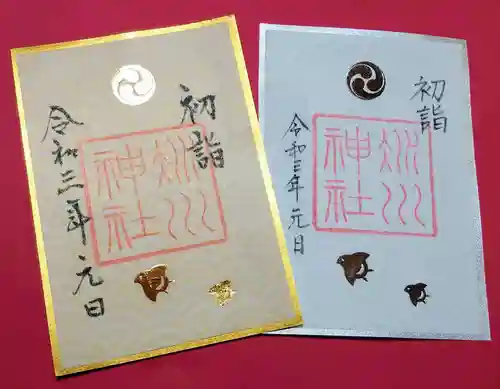 初詣
神社
令和三年元日
初詣
神社
令和三年元日